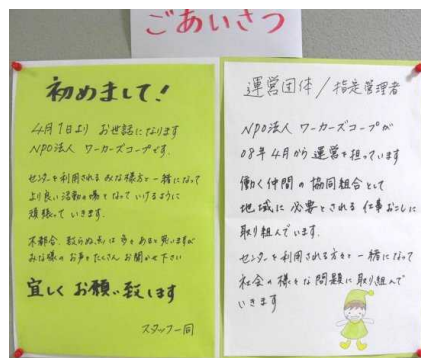 ごあいさつ
初めまして!
4月1日より お世話になります
NPO法人 ワーカーズコープです。
センターを利用される みな様方と一緒になって
より良い活動の場となって いけるように
頑張って いきます。
不都合、至らぬ点は 多々あると思いますが
みな様の お声をたくさん お聞かせ下さい
宜しく お願い致します
スタッフ一同
運営団体/指定管理者
NPO法人 ワーカーズコープが
08年4月から 運営を担っています
働く仲間の協同組合として
地域に必要とされる 仕事おこしに
取り組んでいます。
センターを利用される方々と一緒になって
社会の様々な問題に取り組んで
いきます